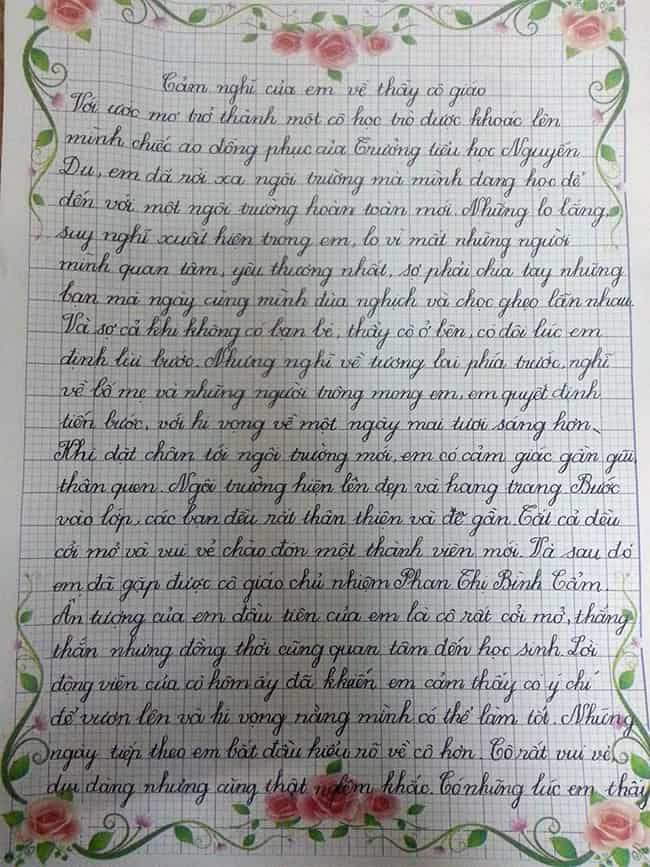 Cảm nghĩ của em về thầy cô giáo
Với ước mơ trở thành một cô học trò được khoác lên
mình chiếc áo đồng phục của Trường tiểu học Nguyễn
Du, em đã rời xa ngôi trường mà mình đang học để
đến với một ngôi trường hoàn toàn mới. Những lo lắng,
suy nghĩ xuất hiện trong em, lo vì mất những người
mình quan tâm, yêu thương nhất, sợ phải chia tay những
bạn mà ngày cùng mình đùa nghịch và chọc ghẹo lẫn nhau.
Và sợ cả khi không có bạn bè, thầy cô ở bên, có đôi lúc em
định lùi bước. Nhưng nghĩ về tương lai phía trước, nghĩ
về bố mẹ và những người trông mong em, em quyết định
tiến bước, với hi vọng về một ngày mai tươi sáng hơn.
Khi đặt chân tới ngôi trường mới, em có cảm giác gần gũi,
thân quen. Ngôi trường hiện lên đẹp và hang trang Bước
vào lớp, các bạn đều rất thân thiện và dễ gần. Tất cả đều
cởi mở và vui vẻ chào đón một thành viên mới. Và sau đó
em đã gặp được cô giáo chủ nhiệm Phan Thị Bình Cảm.
Ấn tượng của em đầu tiên của em là cô rất cởi mở, thẳng
thắn nhưng đồng thời cũng quan tâm đến học sinh. Lời
động viên của cô hôm ấy đã khiến em cảm thấy có ý chí
để vươn lên và hi vọng rằng mình có thể làm tốt. Những
ngày tiếp theo em bắt đầu hiểu rõ về cô hơn. Cô rất vui vẻ,
dịu dàng nhưng cũng thật nghiêm khắc. Có những lúc em thấy